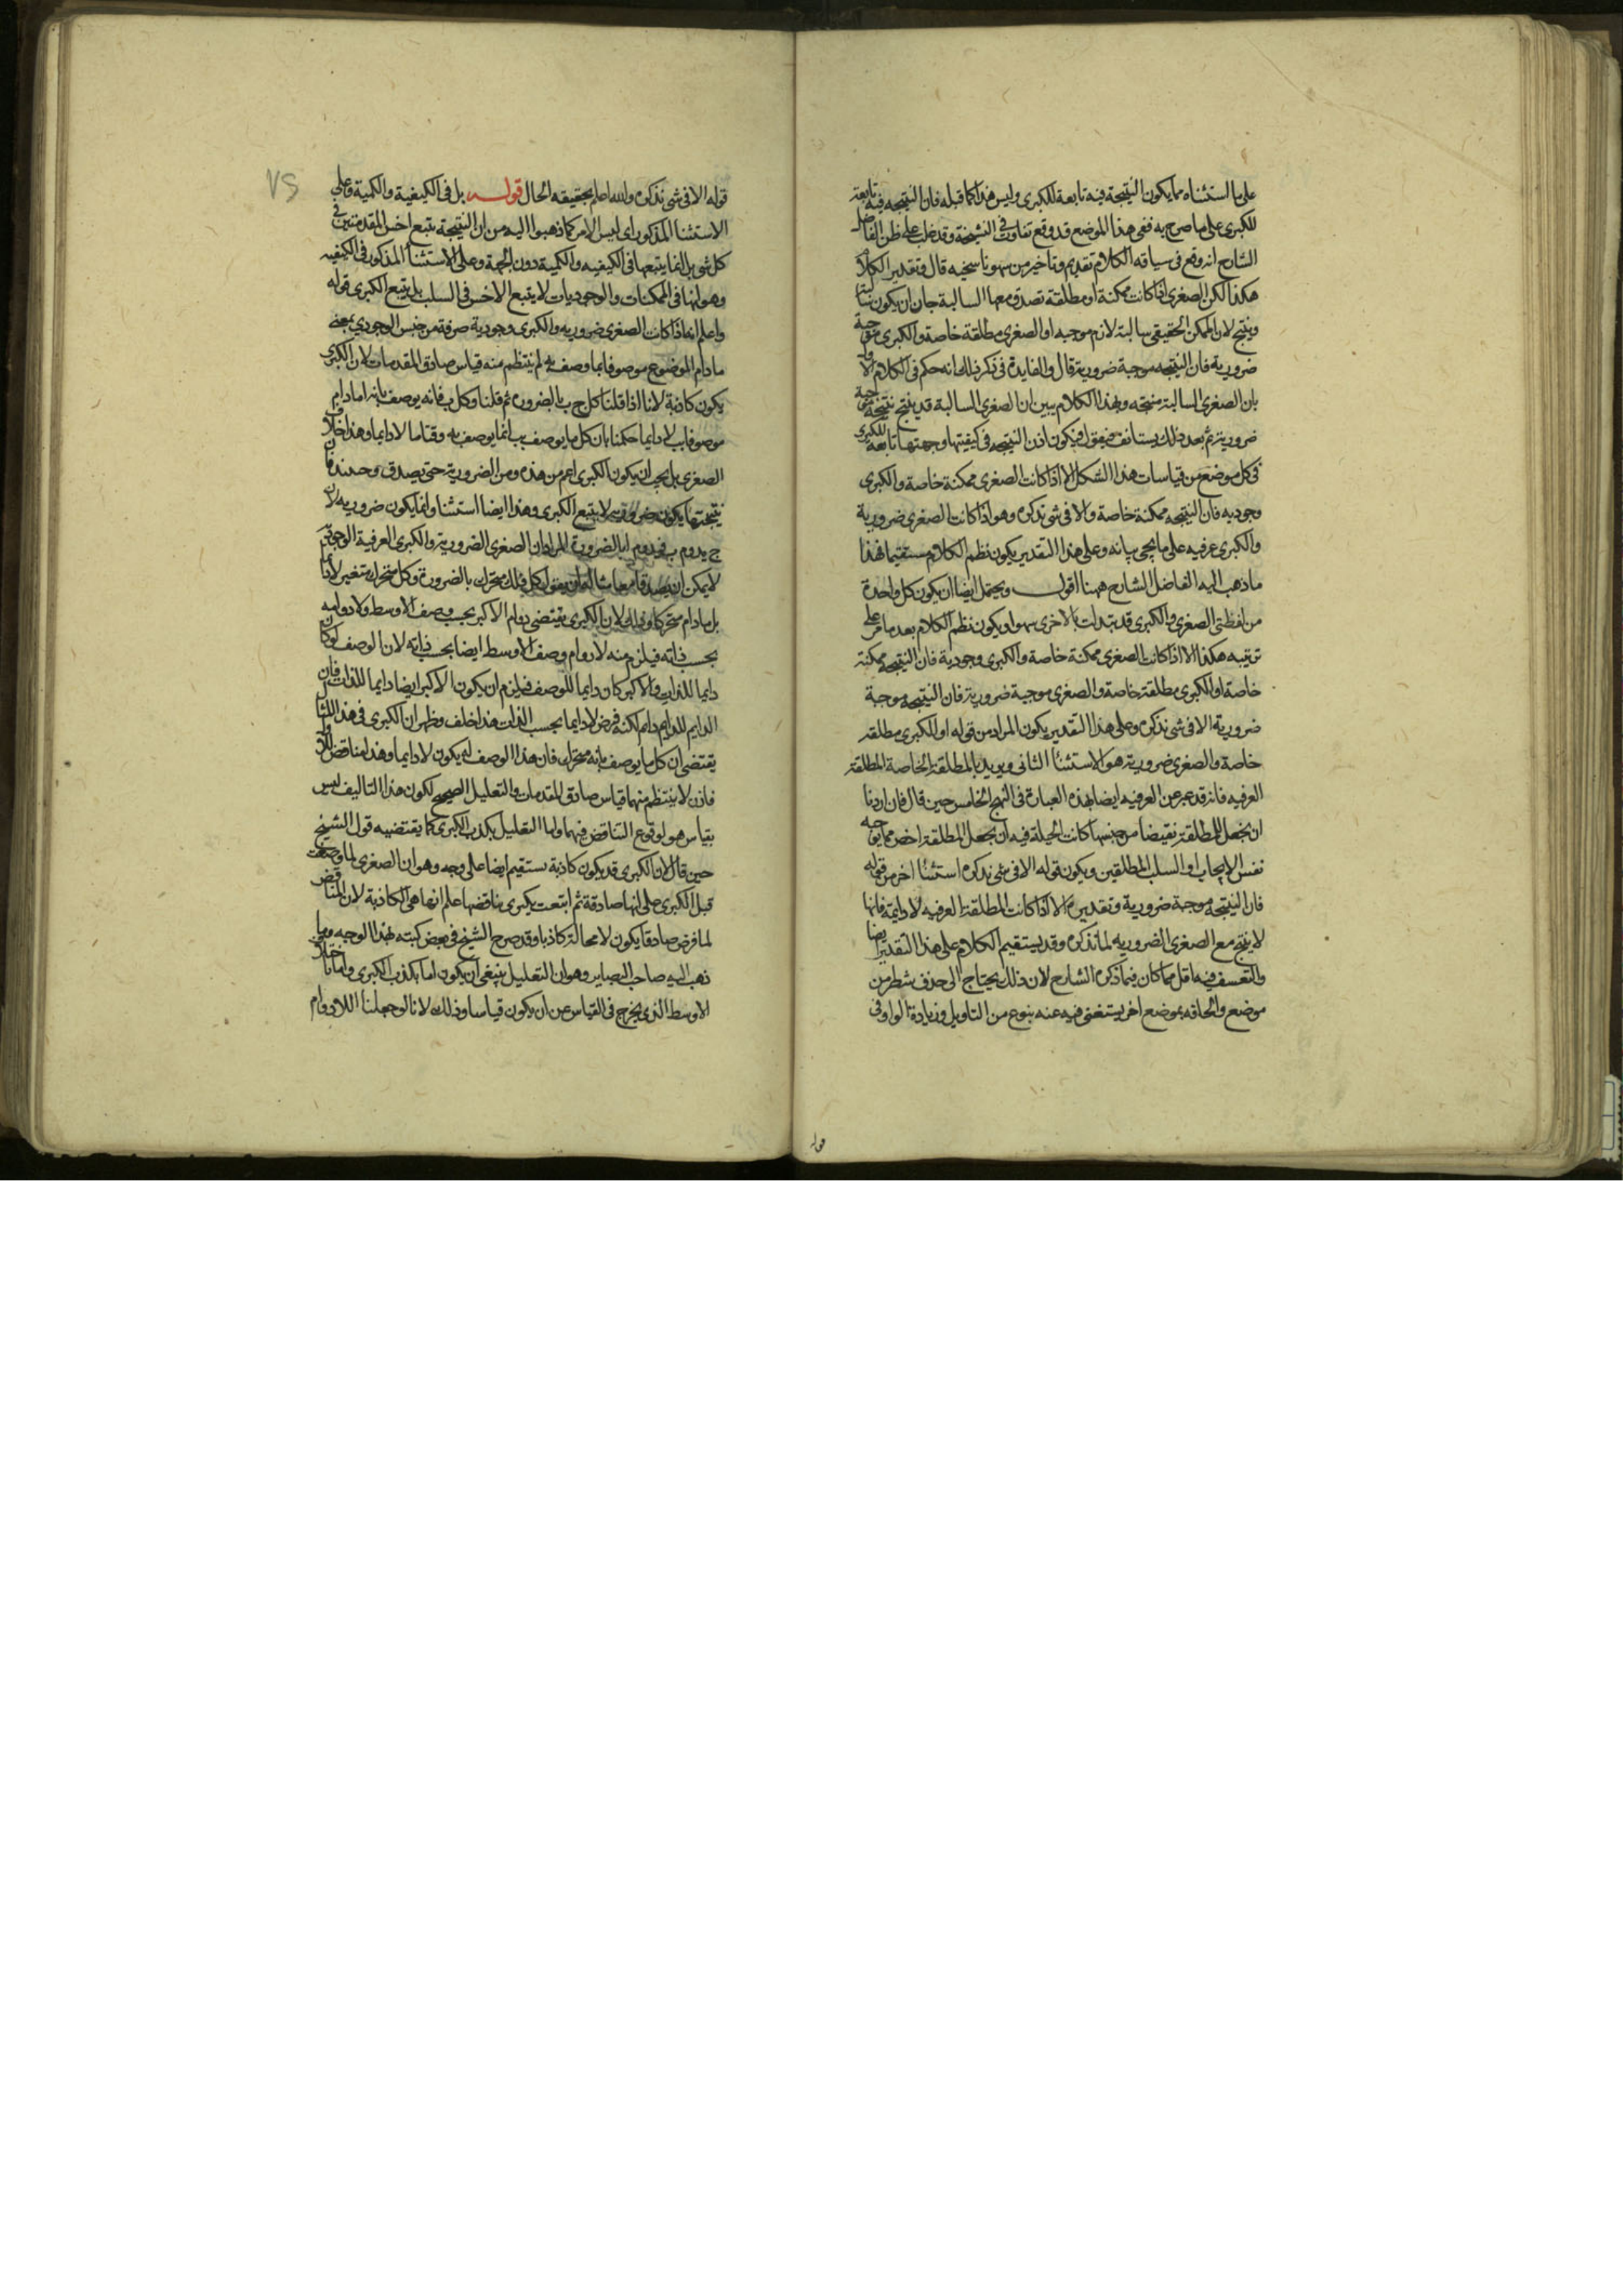 على ما استثناه مما يكون النتيجة فيه تابعة للكبرى وليس هذا كما قبله فان النتيجه فيه تابعة
للكبرى على ما صرح به ففى هذا الموضع قد وقع تفاوت فى النسخة وقد غلب على ظن الفاضل
الشارح انه وقع فى سياقه الكلام تقديم وتاخير من سهو ناسخيه قال وتقدير الكلام
هكذا لكن الصغرى اذا كانت ممكنة او مطلقة تصدق معها السالبة جاز ان يكون سالبة
وينتج لان الممكن الحقيقى سالبة لازم موجبه او الصغرى مطلقة خاصة والكبرى موجبة
ضرورية فان النتيجه موجبة ضرورية قال والفايدة فى ذكر ذلك انه حكم فى الكلام الاول
بان الصغرى السالبة منتجه وبهذا الكلام يبين ان الصغرى السالبة قد ينتج نتيجة موجبة
ضرورية ثم بعد ذلك يستانف فيقول فيكون اذن النتيجه فى كيفيتها وجهتها تابعة للكبرى
فى كل موضع من قياسات هذا الشكل الا اذا كانت الصغرى ممكنة خاصة والكبرى
وجوديه فان النتيجه ممكنة خاصة والا فى شى نذكره وهو اذا كانت الصغرى ضرورية
والكبرى عرفيه على ما يجى بيانه وعلى هذا التقدير يكون نظم الكلام مستقيما فهذا
ما ذهب اليه الفاضل الشارح ههنا اقول ويحتمل ايضا ان يكون كل واحدة
من لفظتى الصغرى والكبرى قد بتدلت بالاخرى سهوا ويكون نظم الكلام بعد ما مر على
ترتيبه هكذا الا اذا كانت الصغرى ممكنة خاصة والكبرى وجودية فان النتيجه ممكنة
خاصة او الكبرى مطلقة خاصة والصغرى موجبة ضرورية فان النتيجه موجبة
ضرورية الا فى شى نذكره وعلى هذا التقدير يكون المراد من قوله او الكبرى مطلقه
خاصة والصغرى ضرورية هو الاستثنأ الثانى ويريد بالمطلقة الخاصة المطلقة
العرفيه فانه قد عبر عن العرفيه ايضا بهذه العبارة فى النهج الخامس حين قال فان اردنا
ان نجعل للمطلقة نقيضا من جنسها كانت الحيلة فيه ان نجعل المطلقة اخص مما يوجبه
نفس الايجاب او السلب المطلقين ويكون قوله الا فى شى نذكره استثنأ اخر من قوله
فان النتيجه موجبة ضرورية وتقديره الا اذا كانت المطلقة العرفيه لادايمة فانها
لا ينتج مع الصغرى الضروريه لما نذكره وقد يستقيم الكلام على هذا التقدير ايضا
والتعسف فيه اقل مما كان فيما ذكره الشارح لان ذلك يحتاج الى حذف شطر من
موضع والحاقه بموضع اخر يستغنى فيه عنه بنوع من التاويل وزيادة الواو فى
قوله
٧٥
قوله الا فى شى نذكره والله اعلم بحقيقه الحال قوله بل فى الكيفية والكمية وعلى
الاستثنأ المذكور اى ليس الامر كما ذهبوا اليه من ان النتيجة يتبع اخس المقدمتين فى
كل شى بل انما يتبعها فى الكيفيه والكمية دون الجهة وعلى الاستثنأ المذكور فى الكيفيه
وهو انها فى الممكنات والوجوديات لا يتبع الاخس فى السلب بل يتبع الكبرى قوله
واعلم انه اذا كانت الصغرى ضروريه والكبرى وجودية صرفة من جنس الوجودي بمعنى
ما دام الموضوع موصوفا بما وصف به لم ينتظم منه قياس صادق المقدمات لان الكبرى
يكون كاذبة لانا اذا قلنا كل ج ب بالضروره ثم قلنا وكل ب فانه يوصف بانه ا ما دام
موصوفا ب لا دايما حكمنا بان كل ما يوصف ب انما يوصف به وقتا ما لا دايما وهذا خلاف
الصغرى بل يجب ان يكون الكبرى اعم من هذه ومن الضرورية حتى يصدق وحينئذ فان
نتيجتها يكون ضرورية لا يتبع الكبرى وهذا ايضا استثنا وانما يكون ضروريه لان
ج يدوم ب فيدوم ا بالضرورة المراد ان الصغرى الضرورية والكبرى العرفية الوجودية
لا يمكن ان يصدقا معا مثاله ان يقول كل فلك متحرك بالضرورة وكل متحرك متغير لا دايما
بل ما دام متحركا وذلك لان الكبرى يقتضى دوام الاكبر بحسب وصف الاوسط ولا دوامه
بحسب ذاته فيلزم منه لا دوام وصف الاوسط ايضا بحسب ذاته لان الوصف لو كان
دايما للذات والاكبر كان دايما للوصف فيلزم ان يكون الاكبر ايضا دايما للذات فان
الدايم للدايم دايم لكنه فرض لا دايما بحسب الذات هذا خلف وظهر ان الكبرى فى هذا المثال
يقتضى ان كل ما يوصف بانه متحرك فان هذا الوصف له يكون لا دايما وهذا مناقض للاول
فاذن لا ينتظم منهما قياس صادق المقدمات والتعليل الصحيح لكون هذا التاليف ليس
بقياس هو لوقوع التناقض فيهما واما التعليل بكذب الكبرى كما يقتضيه قول الشيخ
حين قال لان الكبرى قد يكون كاذبة يستقيم ايضا على وجه وهو ان الصغرى لما وضعت
قبل الكبرى على انها صادقة ثم اتبعت بكبرى يناقضها علم انها هى الكاذبة لان المناقض
لما فرض صادقا يكون لا محالة كاذبا وقد صرح الشيخ فى بعض كتبه بهذا الوجه ومما
ذهب اليه صاحب البصاير وهو ان التعليل ينبغى ان يكون اما بكذب الكبرى واما باختلاف
الاوسط الذى يخرج فى القياس عن ان يكون قياسا وذلك لانا لو جعلنا اللادوام